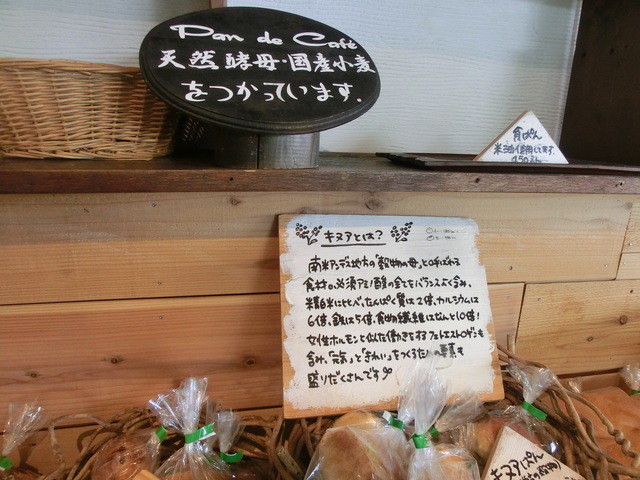 Pan de Café
天然酵母・国産小麦
をつかっています。
食ぱん
米油使用してます。
450えん
キヌアとは?
南米アンデス地方の「穀物の母」と呼ばれる
食材。必須アミノ酸の全てをバランスよく含み、
精白米にくらべ、たんぱく質は2倍、カルシウムは
6倍、鉄は5倍、食物繊維はなんと10倍!
女性ホルモンと似た働きをするフェトエストロゲンも
含み、「元気」と「きれい」をつくるための要素も
盛りだくさんです
キヌアぱん